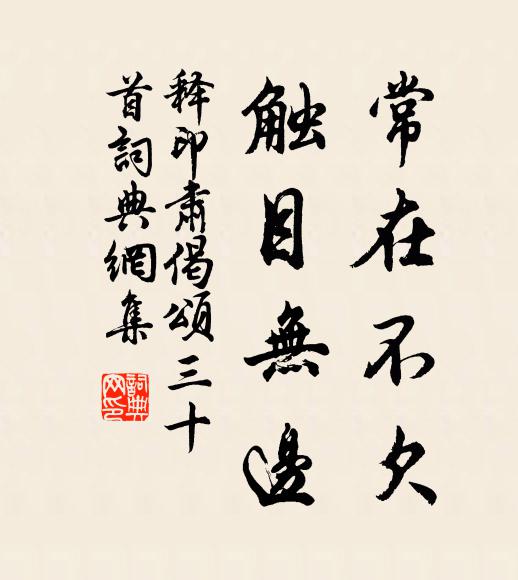 常在不欠
触目無邊
释印肃偈頌三十
首詞典網集
詞典
网印